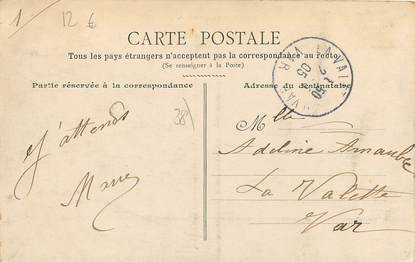 1 12 €
CARTE POSTALE
Tous les pays étrangers n'acceptent pas la correspondance au recto
(Se renseigner à la Poste)
Partie réservée à la correspondance
Adresse du destinataire
LA VALETTE
VAR
05
38
J'attends
Marie
Mlle
Adeline Arnaud
La Valette
Var